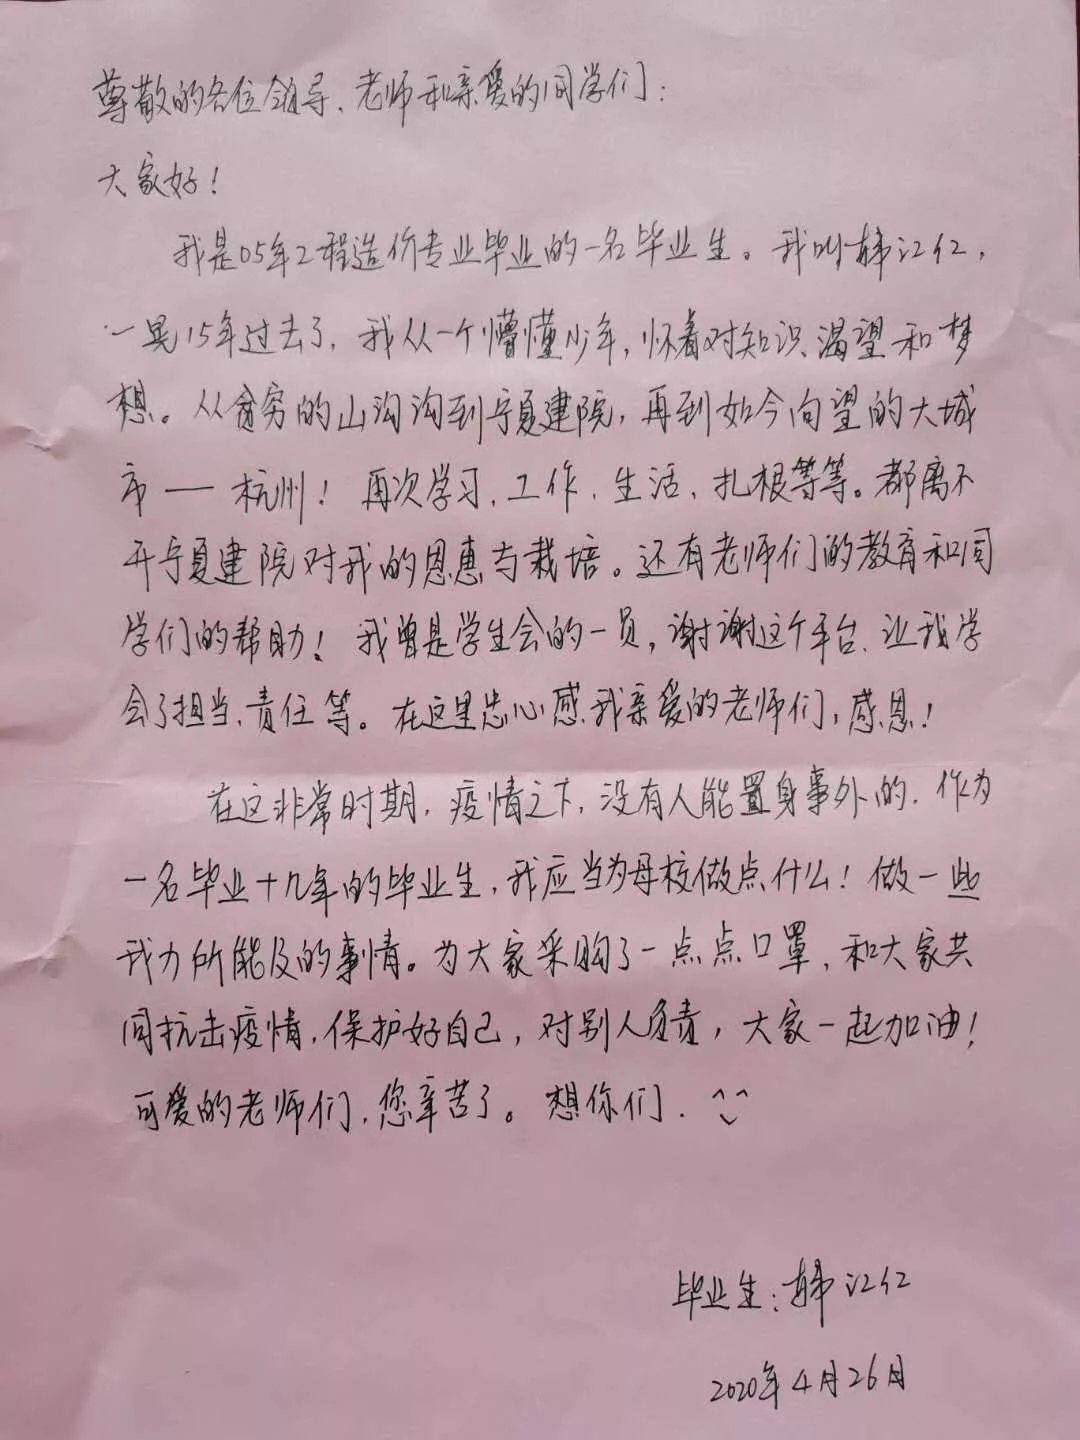 尊敬的各位领导、老师和亲爱的同学们：
大家好！
我是05年工程造价专业毕业的一名毕业生。我叫韩江红，
一晃15年过去了，我从一个懵懂少年，怀着对知识渴望和梦
想。从贫穷的山沟沟到宁夏建院，再到如今向望的大城
市——杭州！再次学习、工作、生活、扎根等等。都离不
开宁夏建院对我的恩惠与栽培。还有老师们的教育和同
学们的帮助！我曾是学生会的一员，谢谢这个平台、让我学
会了担当、责任等。在这里忠心感我亲爱的老师们，感恩！
在这非常时期，疫情之下，没有人能置身事外的，作为
一名毕业十几年的毕业生，我应当为母校做点什么！做一些
我力所能及的事情。为大家采购了一点点口罩，和大家共
同抗击疫情，保护好自己，对别人负责，大家一起加油！
可爱的老师们，您辛苦了。想你们.
毕业生：韩江红
2020年4月26月